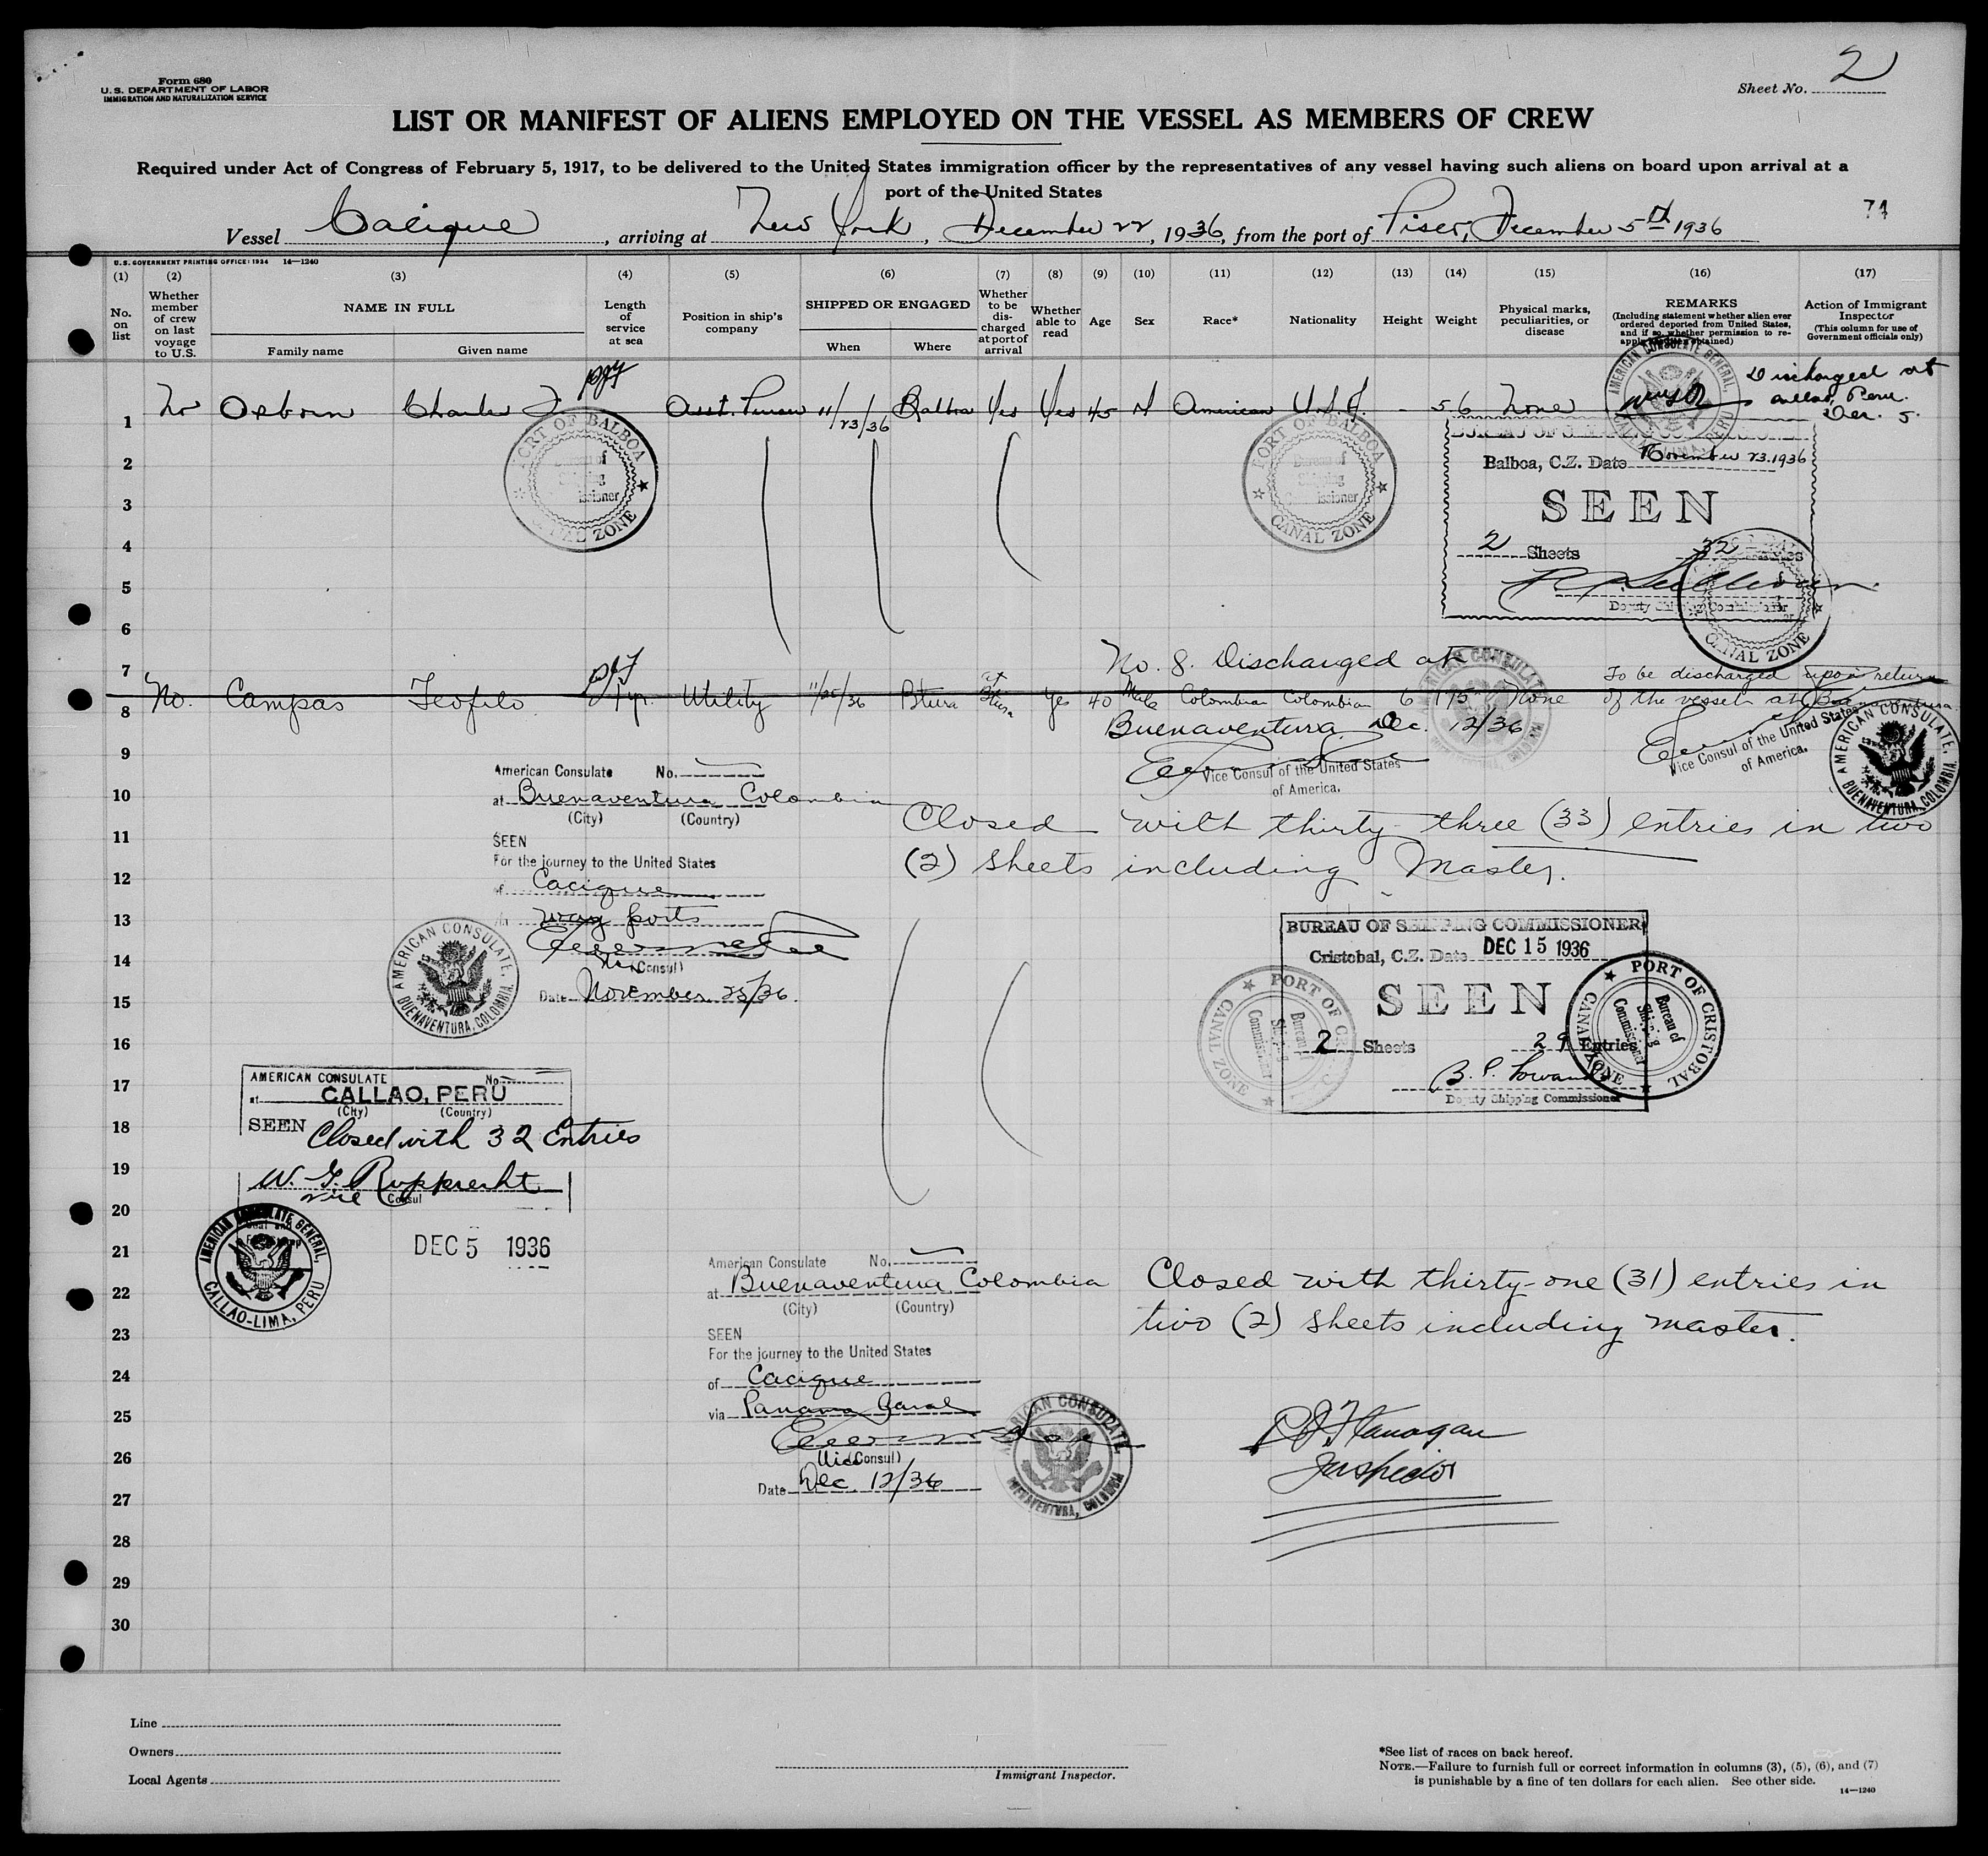 Form 680
U. S. DEPARTMENT OF LABOR
IMMIGRATION AND NATURALIZATION SERVICE
Sheet No. 2
LIST OR MANIFEST OF ALIENS EMPLOYED ON THE VESSEL AS MEMBERS OF CREW
Required under Act of Congress of February 5, 1917, to be delivered to the United States immigration officer by the representatives of any vessel having such aliens on board upon arrival at a
port of the United States
74
Vessel Cacique, arriving at New York, December 22, 1936, from the port of Pisco, December 5th 1936
U. S. GOVERNMENT PRINTING OFFICE: 1934 14—1240
(1) (2) (3) (4) (5) (6) (7) (8) (9) (10) (11) (12) (13) (14) (15) (16) (17)
No. on list
Whether member of crew on last voyage to U.S.
NAME IN FULL
Family name Given name
Length of service at sea
Position in ship's company
SHIPPED OR ENGAGED
When Where
Whether to be discharged at port of arrival
Whether able to read
Age
Sex
Race*
Nationality
Height
Weight
Physical marks, peculiarities, or disease
REMARKS
(Including statement whether alien ever ordered deported from United States, and if so, whether permission to reapply has been obtained)
Action of Immigrant Inspector
(This column for use of Government officials only)
1 No Osborn Charles J. Asst. Purser 11/23/36 Balboa Yes Yes 45 M American U.S.A. - 5 6 None
Discharged at
Callao, Peru.
Dec. 5.
AMERICAN CONSULATE GENERAL, CALLAO-LIMA, PERU
PORT OF BALBOA
Bureau of Shipping Commissioner
CANAL ZONE
PORT OF BALBOA
Bureau of Shipping Commissioner
CANAL ZONE
BUREAU OF SHIPPING COMMISSIONER
Balboa, C.Z. Date November 23. 1936
SEEN
2 Sheets 32 Entries
Deputy Shipping Commissioner
CANAL ZONE
2
3
4
5
6
7
No. 8. Discharged at
To be discharged upon return
8 No. Campas Teofilo 1 yr. Utility 11/25/36 Btura at Btura Yes 40 Male Colombian Colombian 6 175 None of the vessel at Buenaventura
Buenaventura, Dec. 12/36
Vice Consul of the United States
of America.
Vice Consul of the United States
of America.
AMERICAN CONSULATE, BUENAVENTURA, COLOMBIA
9
10
11
12
13
14
15
16
17
18
19
20
21
22
23
24
25
26
27
28
29
30
American Consulate No.
at Buenaventura Colombia
(City) (Country)
SEEN
For the journey to the United States
of Cacique
via way ports
(Consul)
Date November 25/36.
AMERICAN CONSULATE, BUENAVENTURA, COLOMBIA
Closed with thirty-three (33) entries in two
(2) sheets including Master.
BUREAU OF SHIPPING COMMISSIONER
Cristobal, C.Z. Date DEC 15 1936
SEEN
2 Sheets 29 Entries
Deputy Shipping Commissioner
PORT OF CRISTOBAL
Bureau of Shipping Commissioner
CANAL ZONE
PORT OF CRISTOBAL
Bureau of Shipping Commissioner
CANAL ZONE
AMERICAN CONSULATE No.
at CALLAO, PERU
(City) (Country)
SEEN Closed with 32 Entries
W. G. Rupprecht
vice Consul
AMERICAN CONSULATE GENERAL, CALLAO-LIMA, PERU
DEC 5 1936
American Consulate No.
at Buenaventura, Colombia
(City) (Country)
SEEN
For the journey to the United States
of Cacique
via Panama Canal
Vice (Consul)
Date Dec. 12/36
AMERICAN CONSULATE, BUENAVENTURA, COLOMBIA
Closed with thirty-one (31) entries in
two (2) sheets including master.
P J Flanagan
Inspector
Line
Owners
Local Agents
Immigrant Inspector.
*See list of races on back hereof.
NOTE.—Failure to furnish full or correct information in columns (3), (5), (6), and (7)
is punishable by a fine of ten dollars for each alien. See other side.
14—1240